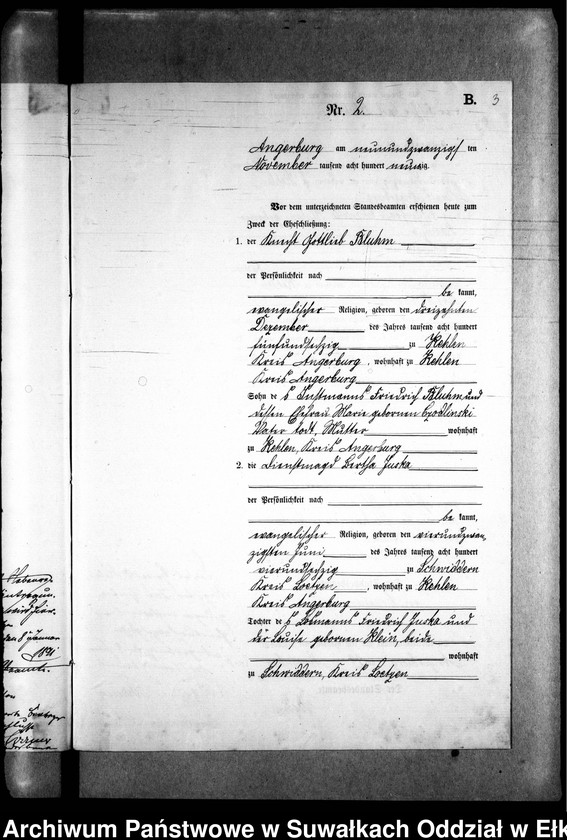 B. 3
Nr. 2.
Angerburg am neunundzwanzigsten
November tausend acht hundert neunzig.
Vor dem unterzeichneten Standesbeamten erschienen heute zum
Zweck der Eheschließung:
1. der Knecht Gottlieb Bluhm
der Persönlichkeit nach
be kannt,
evangelischer Religion, geboren den dreizehnten
Dezember des Jahres tausend acht hundert
fünfundsechzig zu Kehlen
Kreis Angerburg, wohnhaft zu Kehlen
Kreis Angerburg
Sohn des Instmanns Friedrich Bluhm und
dessen Ehefrau Marie geborenen
Vater todt, Mutter wohnhaft
zu Kehlen, Kreis Angerburg
2. die Dienstmagd Bertha Juska
der Persönlichkeit nach
be kannt,
evangelischer Religion, geboren den vierundzwan
zigsten Juni des Jahres tausend acht hundert
vierundsechzig zu Schwiddern
Kreis Loetzen, wohnhaft zu Kehlen
Kreis Angerburg
Tochter des Losmanns Friedrich Juska und
der Louise geborenen Klein, beide
wohnhaft
zu Schwiddern, Kreis Loetzen
Archiwum Państwowe w Suwałkach Oddział w Ełk